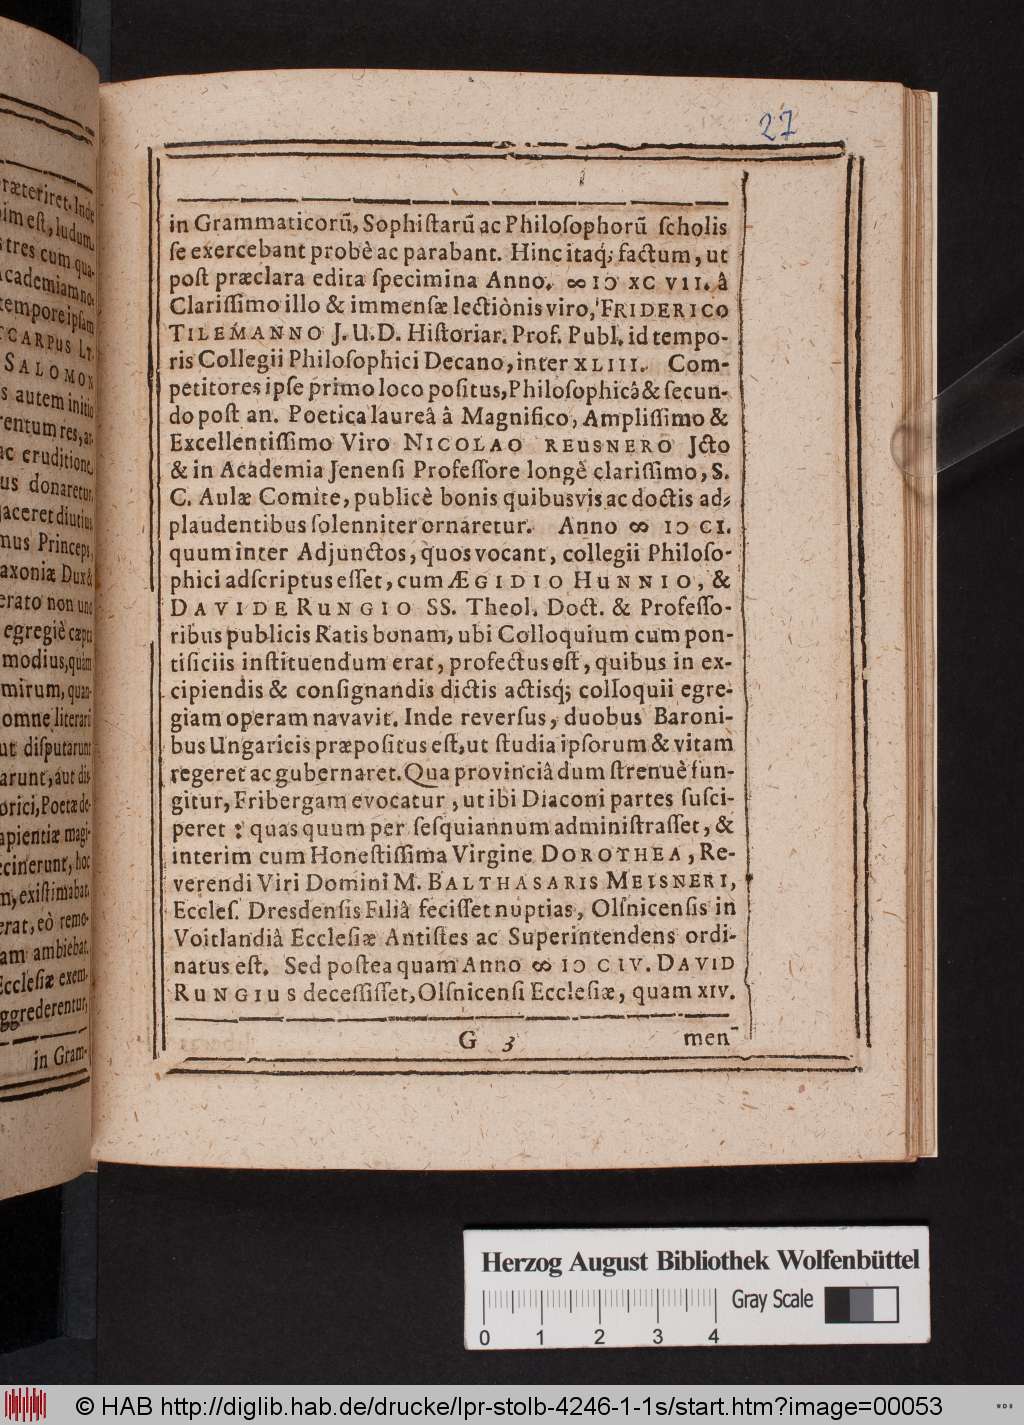 27
in Grammaticorũ, Sophiſtarũ ac Philoſophorũ ſcholis
ſe exercebant probè ac parabant. Hinc itaq́; factum, ut
poſt præclara edita ſpecimina Anno. ∞ IƆ XC VII. â
Clariſſimo illo & immenſæ lectiònis viro, FRIDERICO
TILEMANNO J. U. D. Hiſtoriar. Prof. Publ. id tempo-
ris Collegii Philoſophici Decano, inter XLIII. Com-
petitores ipſe primo loco poſitus, Philoſophicâ & ſecun-
do poſt an. Poetica laureâ â Magnifico, Ampliſſimo &
Excellentiſſimo Viro NICOLAO REUSNERO Jcto
& in Academia Jenenſi Profeſſore longè clariſſimo, S.
C. Aulæ Comite, publicè bonis quibusvis ac doctis ad-
plaudentibus ſolenniter ornaretur. Anno ∞ IƆ CI.
quum inter Adjunctos, quos vocant, collegii Philoſo-
phici adſcriptus eſſet, cum ÆGIDIO HUNNIO, &
DAVIDE RUNGIO SS. Theol. Doct. & Profeſſo-
ribus publicis Ratis bonam, ubi Colloquium cum pon-
tificiis inſtituendum erat, profectus eſt, quibus in ex-
cipiendis & conſignandis dictis actisq́; colloquii egre-
giam operam navavit. Inde reverſus, duobus Baroni-
bus Ungaricis præpoſitus eſt, ut ſtudia ipſorum & vitam
regeret ac gubernaret. Qua provinciâ dum ſtrenuè fun-
gitur, Fribergam evocatur, ut ibi Diaconi partes ſuſci-
peret : quas quum per ſeſquiannum adminiſtraſſet, &
interim cum Honeſtiſſima Virgine DOROTHEA, Re-
verendi Viri Domini M. BALTHASARIS MEISNERI,
Eccleſ. Dresdenſis Filiâ feciſſet nuptias, Olſnicenſis in
Voitlandiâ Eccleſiæ Antiſtes ac Superintendens ordi-
natus eſt. Sed poſtea quam Anno ∞ IƆ CIV. DAVID
RUNGIUS deceſſiſſet, Olſnicenſi Eccleſiæ, quam XIV.
G 3 men-
præteriret. Inde
im eſt, ludum,
tres cum qua-
Academiam no-
tempore ipſam
CARPUS LT.
SALOMON
s autem initio
rentum res, ar-
ac eruditione,
us donaretur,
jaceret diutius
mus Princeps,
axoniæ Dux &
erato non uno
egregiè cæpta
modius, quàm
mirum, quan-
omne literari
ut diſputarunt
arunt, aut diſ-
orici, Poetæ de-
apientiæ magi-
ecinerunt, hoc
m, exiſtimabat.
erat, eò remo-
am ambiebat.
Eccleſiæ exem-
ggrederentur,
in Gram-
Herzog August Bibliothek Wolfenbüttel
Gray Scale
0 1 2 3 4
© HAB http://diglib.hab.de/drucke/lpr-stolb-4246-1-1s/start.htm?image=00053